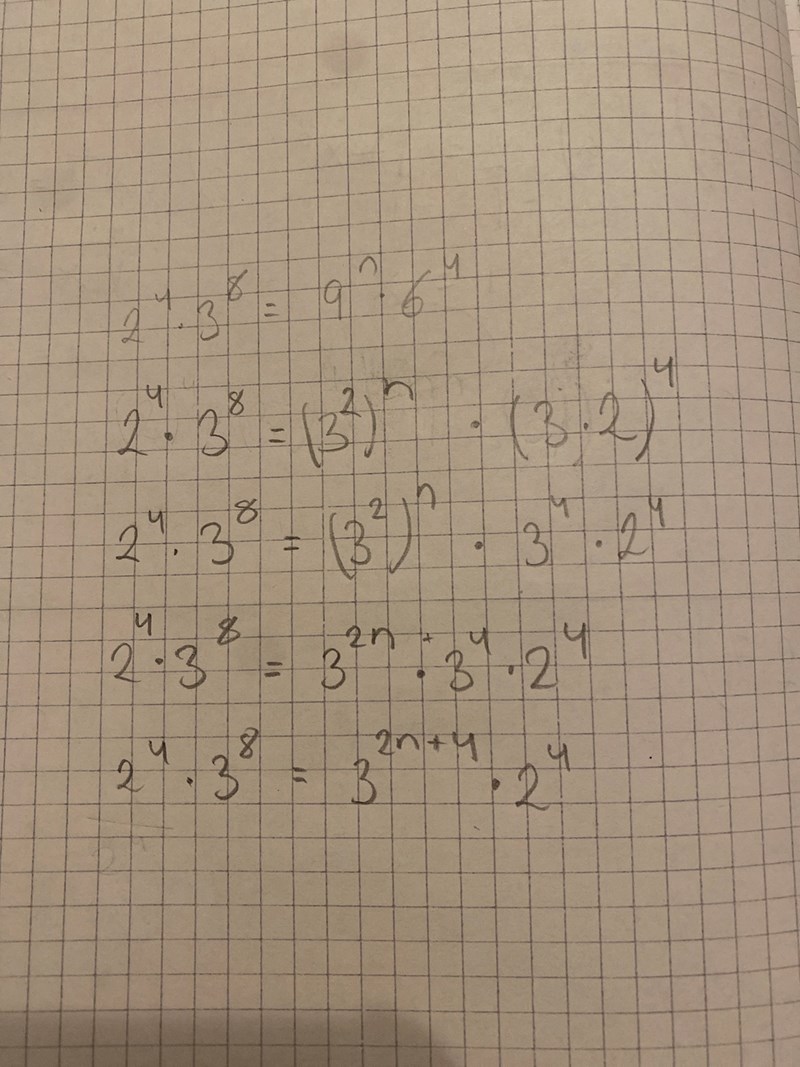 2⁴ · 3⁸ = 9ⁿ · 6⁴
2⁴ · 3⁸ = (3²)ⁿ · (3 · 2)⁴
2⁴ · 3⁸ = (3²)ⁿ · 3⁴ · 2⁴
2⁴ · 3⁸ = 3²ⁿ · 3⁴ · 2⁴
2⁴ · 3⁸ = 3²ⁿ⁺⁴ · 2⁴